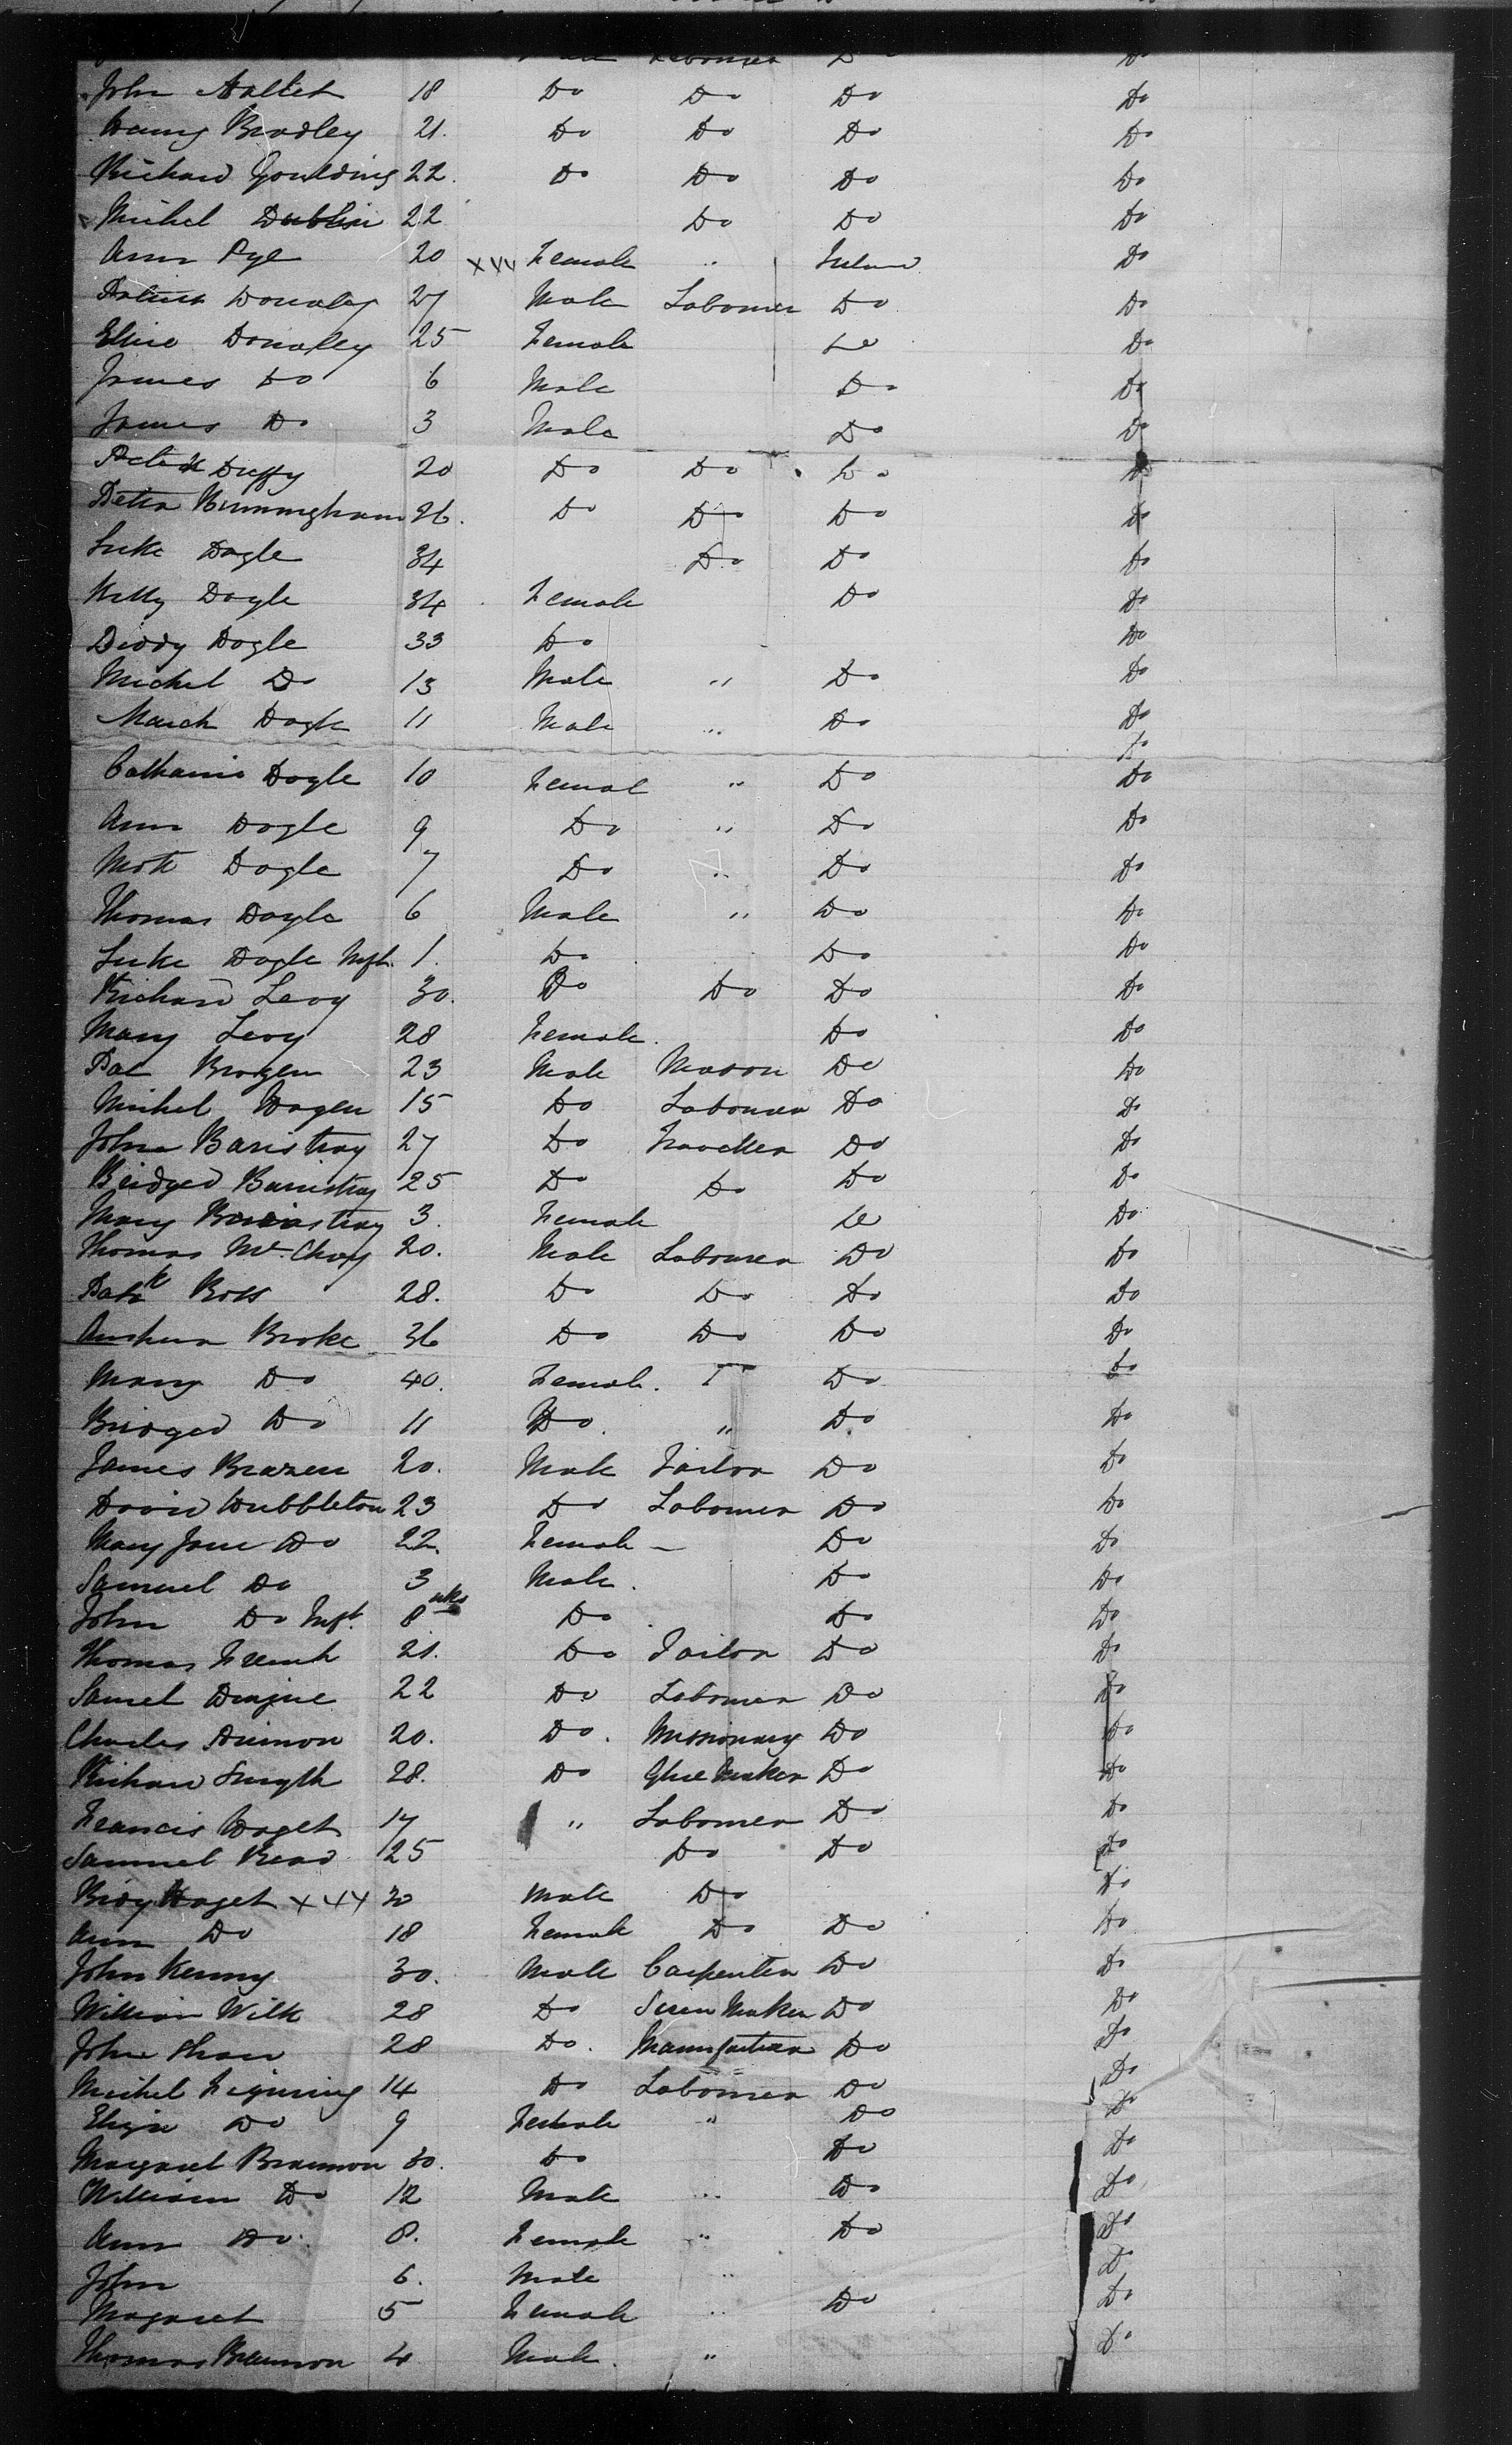 Labourer Do Do
John Hallet 18 Do Do Do Do
Bradley 21. Do Do Do Do
Richard Goulding 22. Do Do Do Do
Michel Dublin 22 Do Do Do
Ann Pye 20 Female " Ireland Do
Donaley 27 Male Labourer Do Do
Donaley 25 Female Do Do
James Do 6 Male Do Do
James Do 3 Male Do Do
Duffy 20 Do Do Do Do
Peter Burmingham 26. Do Do Do Do
Luke Dogle 34 Do Do Do
Kitty Dogle 34 Female Do Do
Biddy Dogle 33 Do Do
Michel Do 13 Male " Do Do
Dogle 11 Male " Do Do
Do
Catharine Dogle 10 Femal " Do Do
Ann Dogle 9 Do " Do Do
Dogle 7 Do " Do Do
Thomas Dogle 6 Male " Do Do
Luke Dogle Inft. 1. Do Do Do
Richard Levy 30. Do Do Do Do
Mary Levy 28 Female. Do Do
Pat Brogen 23 Male Mason Do Do
Michel 15 Do Labourer Do Do
John Baristray 27 Do Traveller Do Do
Bridged Barristray 25 Do Do Do Do
Mary 3. Female Do Do
Thomas 20. Male Labourer Do Do
Patk Ross 28. Do Do Do Do
Broke 36 Do Do Do Do
Mary Do 40. Female. Do Do
Bridged Do 11 Do. " Do Do
James Brazen 20. Male Tailor Do Do
David Hubbleton 23 Do Labourer Do Do
Mary Jane Do 22. Female - Do Do
Samuel Do 3 Male. Do Do
John Do Inft. 8 wks Do Do Do
Thomas French 21. Do Tailor Do Do
22 Do Labourer Do Do
Charles 20. Do. Missionary Do Do
Richard Smyth 28. Do Glue Maker Do Do
Francis 17 " Labourer Do Do
Samuel Read 25 Do Do Do
30 Male Do Do
Ann Do 18 Female Do Do Do
John Kenny 30. Male Carpenter Do Do
William Wilk 28 Do Maker Do Do
John Shaw 28 Do. Do Do
Michel 14 Do Labourer Do Do
Do 9 Female " Do Do
Margaret Brannon 30. Do Do Do
William Do 12 Male " Do Do
Ann Do. 8. Female " Do Do
John 6. Male " Do
Margaret 5 Female " Do Do
Thomas Brannon 4 Male. " Do